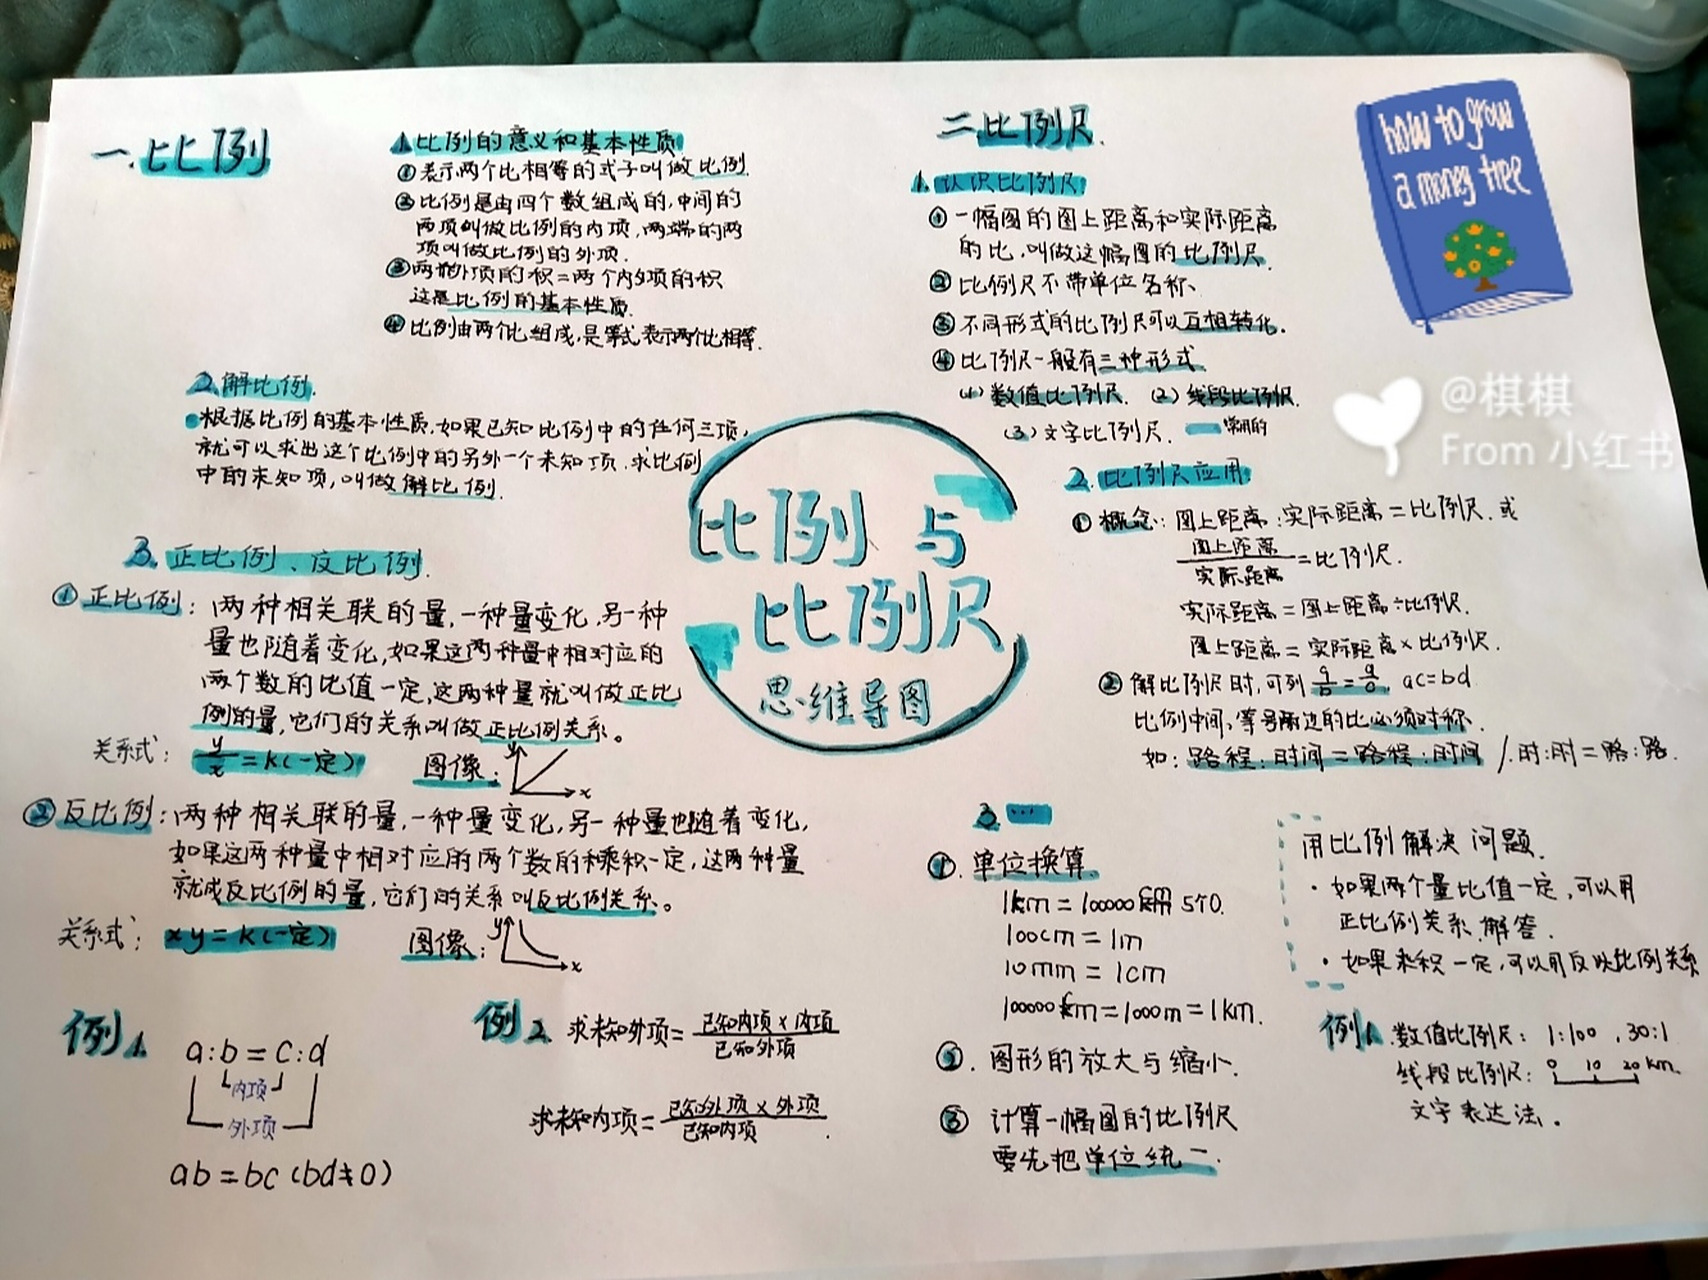 一.比例
1.比例的意义和基本性质
①表示两个比相等的式子叫做比例.
②比例是由四个数组成的,中间的
两项叫做比例的内项,两端的两
项叫做比例的外项.
③两个外项的积=两个内项的积
这是比例的基本性质.
④比例由两个比组成,是等式表示两个比相等.
2.解比例.
根据比例的基本性质,如果已知比例中的任何三项,
就可以求出这个比例中的另外一个未知项.求比例
中的未知项,叫做解比例.
3.正比例、反比例.
①正比例:两种相关联的量,一种量变化,另一种
量也随着变化,如果这两种量中相对应的
两个数的比值一定,这两种量就叫做正比
例的量,它们的关系叫做正比例关系。
关系式: y/x=k(一定) 图像: y x
②反比例:两种相关联的量,一种量变化,另一种量也随着变化,
如果这两种量中相对应的两个数的乘积一定,这两种量
就成反比例的量,它们的关系叫反比例关系。
关系式: xy=k(一定) 图像: y x
例1.
a:b=c:d
内项
外项
ab=bc(bd≠0)
例2. 求未知外项=已知内项×内项/已知外项
求未知内项=已知外项×外项/已知内项.
比例与
比例尺
思维导图
二.比例尺.
1.认识比例尺
①一幅图的图上距离和实际距离
的比,叫做这幅图的比例尺.
②比例尺不带单位名称、
③不同形式的比例尺可以互相转化.
④比例尺一般有三种形式.
(1)数值比例尺. (2)线段比例尺.
(3)文字比例尺. 常用的
2.比例尺应用
①概念:图上距离:实际距离=比例尺.或
图上距离/实际距离=比例尺.
实际距离=图上距离÷比例尺.
图上距离=实际距离×比例尺.
②解比例尺时,可列 ac=bd
比例中间,等号两边的比必须对称.
如:路程:时间=路程:时间/.时:时=路:路.
3.…
①.单位换算.
1km=100000cm 5个0.
100cm=1m
10mm=1cm
100000cm=1000m=1km.
②.图形的放大与缩小.
③ 计算一幅图的比例尺
要先把单位统一.
用比例解决问题.
·如果两个量比值一定,可以用
正比例关系.解答.
·如果乘积一定,可以用反比例关系
例1.数值比例尺: 1:100 ,30:1
线段比例尺: 0 10 20km.
文字表达法。
how to grow
a money tree
@棋棋
From 小红书